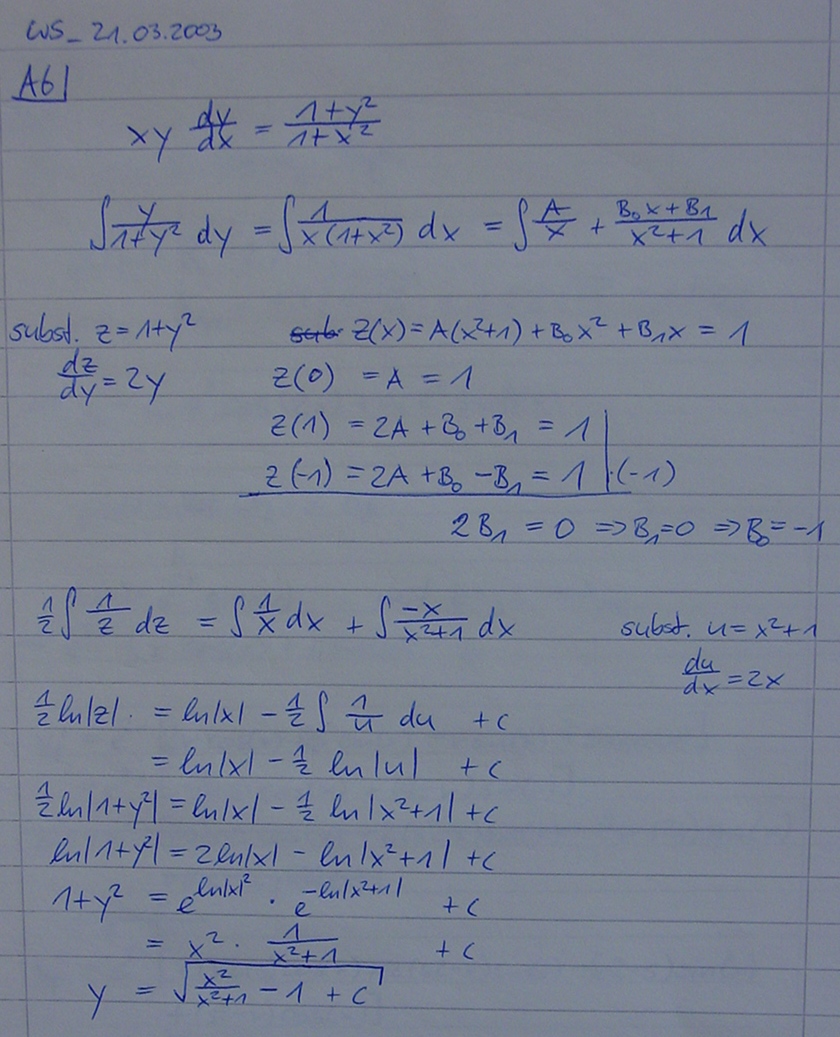 WS_ 21.03.2003
A6|
xy dy/dx = (1+y²)/(1+x²)
∫ y/(1+y²) dy = ∫ 1/(x(1+x²)) dx = ∫ A/x + (B₀x+B₁)/(x²+1) dx
subst. z=1+y² z(x)=A(x²+1)+B₀x²+B₁x = 1
dz/dy = 2y z(0) = A = 1
z(1) = 2A+B₀+B₁ = 1 |
z(-1) = 2A+B₀-B₁ = 1 |·(-1)
2B₁ = 0 ⇒ B₁=0 ⇒ B₀=-1
½∫ 1/z dz = ∫ 1/x dx + ∫ -x/(x²+1) dx subst. u=x²+1
du/dx = 2x
½ ln|z| = ln|x| - ½ ∫ 1/u du + c
= ln|x| - ½ ln|u| + c
½ ln|1+y²| = ln|x| - ½ ln|x²+1| + c
ln|1+y²| = 2ln|x| - ln|x²+1| + c
1+y² = e^(ln|x|²) · e^(-ln|x²+1|) + c
= x² · 1/(x²+1) + c
y = √(x²/(x²+1) - 1 + c)